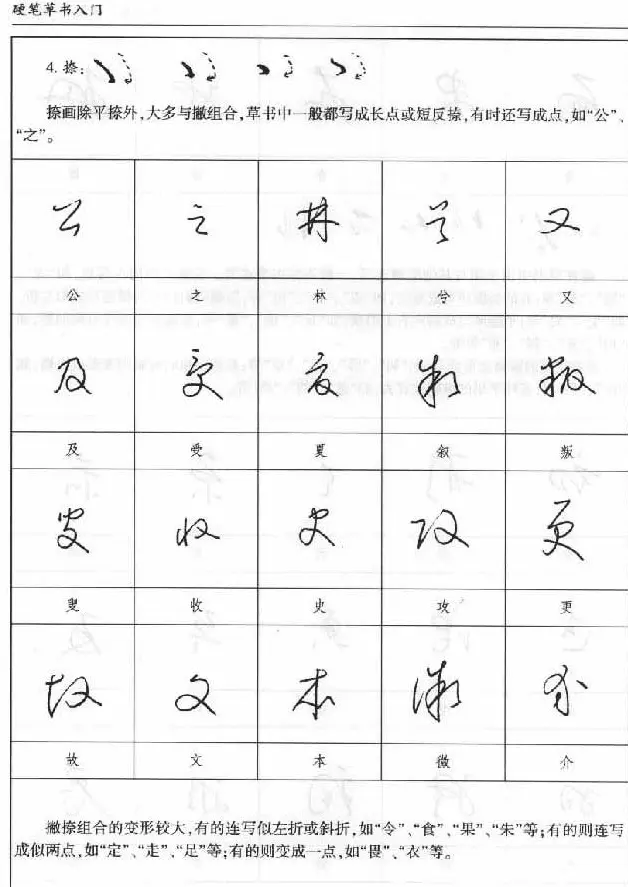 硬笔草书入门
4.捺:
捺画除平捺外,大多与撇组合,草书中一般都写成长点或短反捺,有时还写成点,如“公”、
“之”。
公 之 林 兮 又
及 受 夏 叙 叛
叟 收 史 攻 更
故 文 本 微 介
撇捺组合的变形较大,有的连写似左折或斜折,如“令”、“食”、“果”、“朱”等;有的则连写
成似两点,如“定”、“走”、“足”等;有的则变成一点,如“畏”、“衣”等。